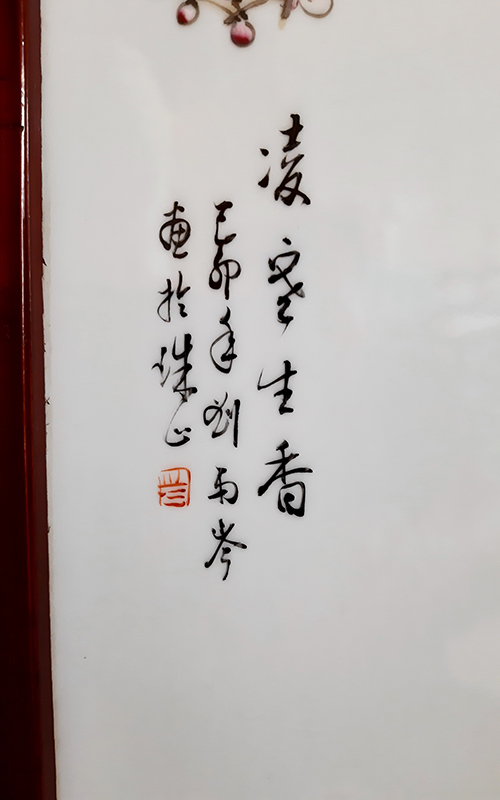 凌寒生香
己卯年刘雨岑
画於珠山